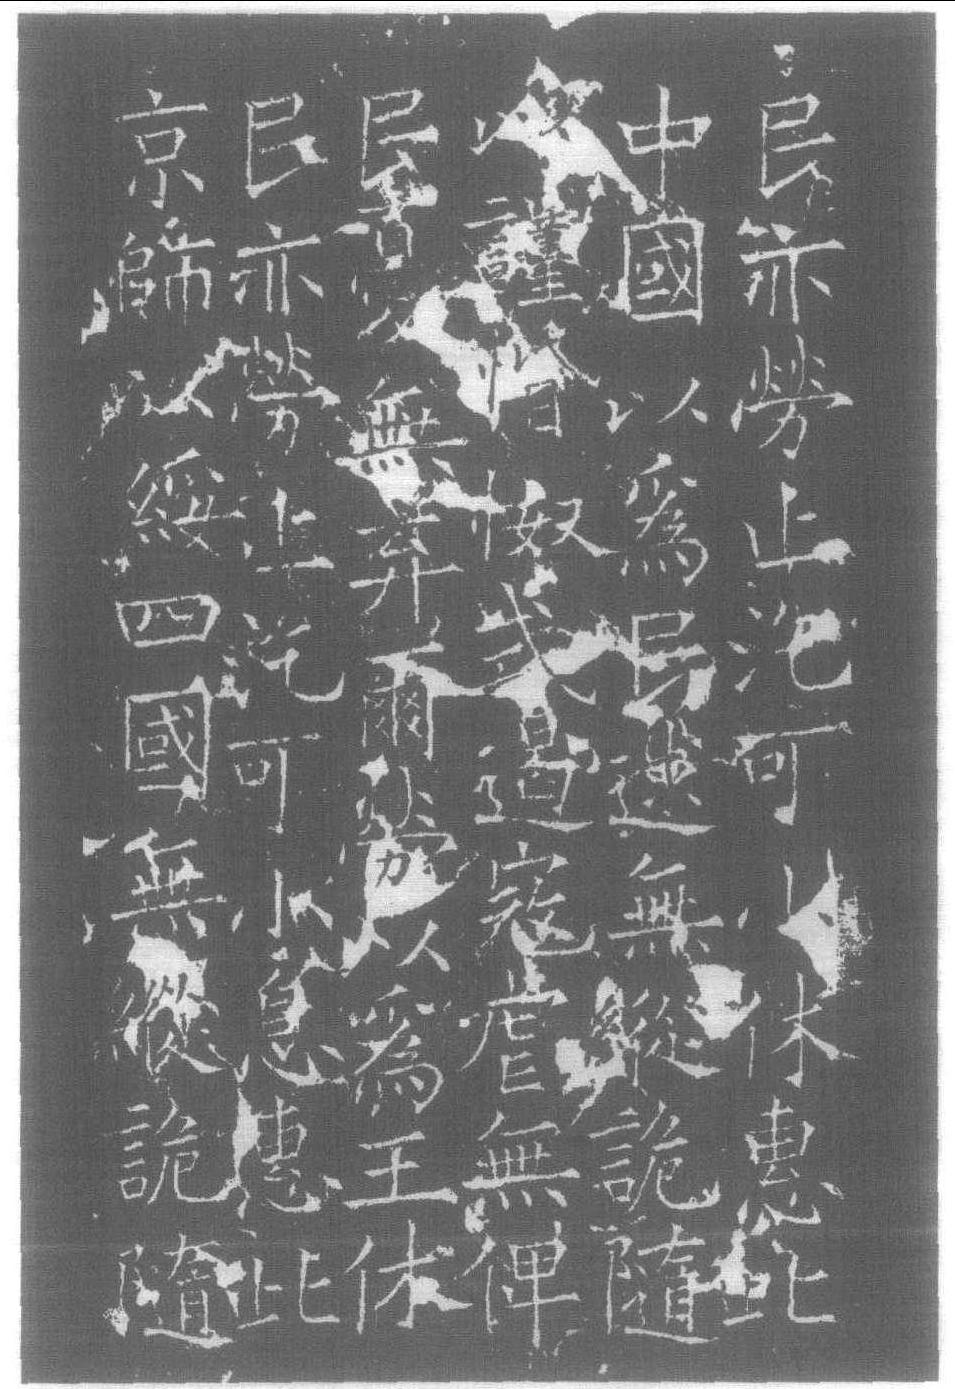 民亦勞止汔可小休惠此
中國以為民逑無縱詭隨
以謹惛怓式遏寇虐無俾
民憂無弃爾勞以為王休
民亦勞止汔可小息惠此
京師以綏四國無縱詭隨